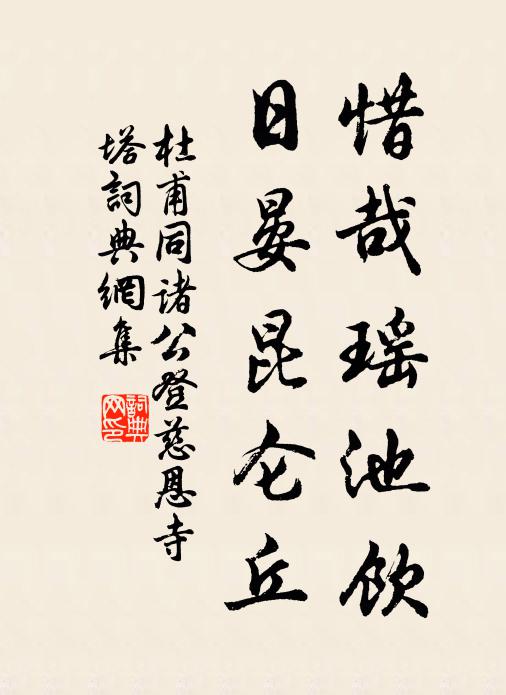 惜哉瑶池饮
日晏昆仑丘
杜甫同諸公登慈恩寺
塔詞典網集
詞典
网印